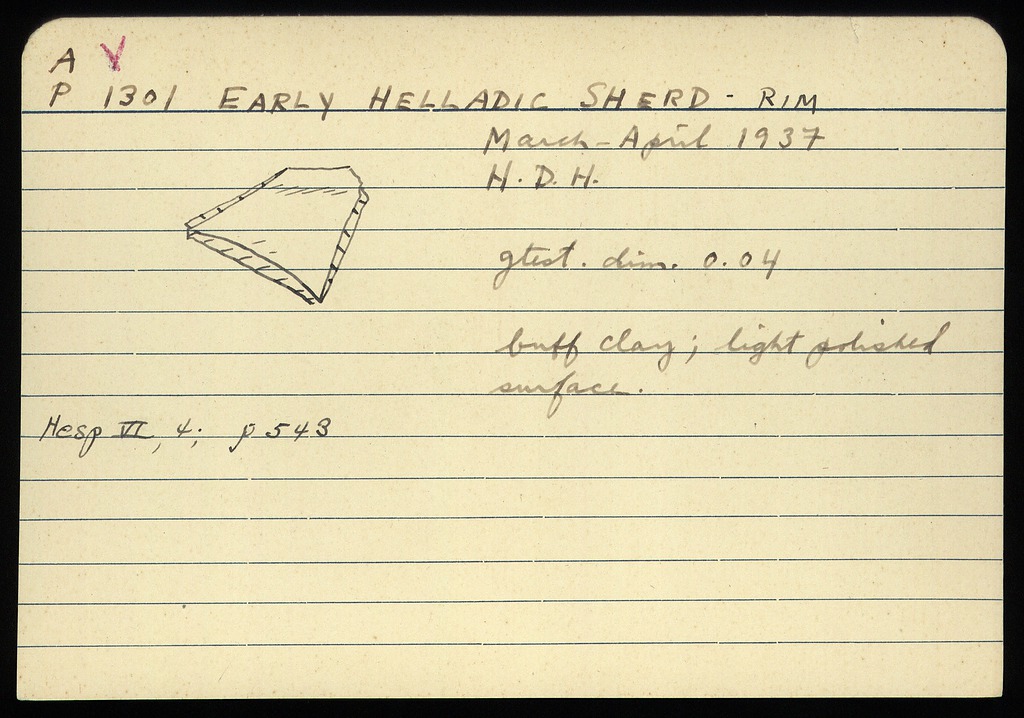 A
P 1301 EARLY HELLADIC SHERD - RIM
March - April 1937
H. D. H.
gtest. dim. 0.04
buff clay; light polished
surface.
Hesp VI, 4; p 543